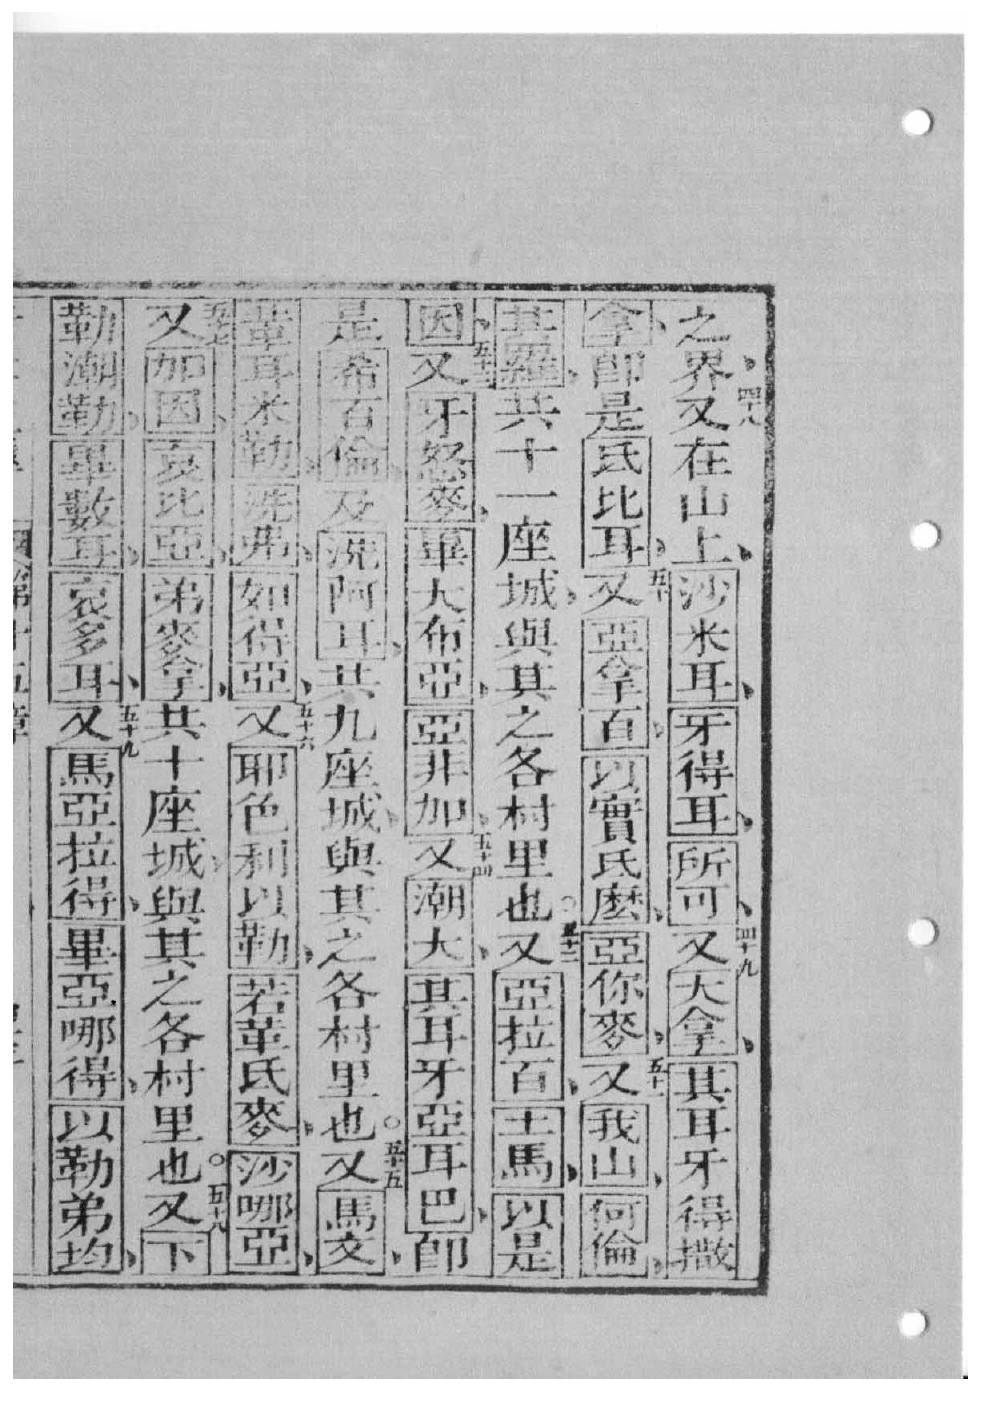 之界、四十八又在山上、沙米耳、牙得耳、所可、四十九又大拿、其耳牙得撒
拿、卽是氏比耳、五十又亞拿百、以實氏麽、亞你麥、五十一又我山、何倫、
其羅、共十一座城、與其之各村里也。五十二又亞拉百、土馬、以是
因、五十三又牙怒麥、畢大布亞、亞非加、五十四又潮大、其耳牙亞耳巴、卽
是希百倫、及洗阿耳、共九座城、與其之各村里也。五十五又馬文、
葦耳米勒、洗弗、如得亞、五十六又耶色利以勒、若革氏麥、沙哪亞、
五十七又加因、哀比亞、弟麥拿、共十座城、與其之各村里也。五十八又下
勒潮勒、畢數耳、哀多耳、五十九又馬亞拉得、畢亞哪得、以勒弟均、